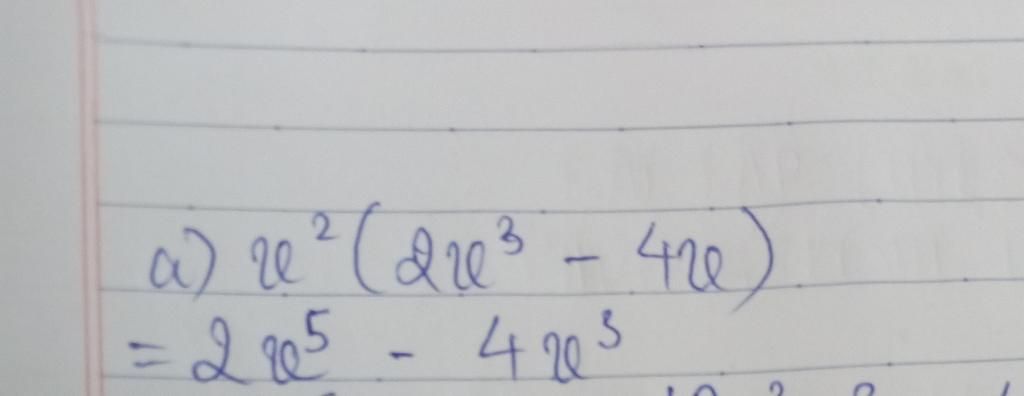 a) x² (2x³ - 4x)
= 2x⁵ - 4x³